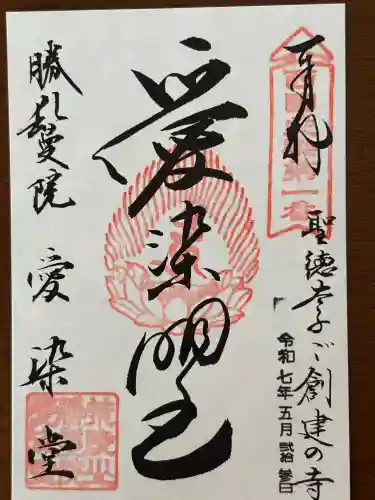 奉拝
第一番
聖徳太子ご創建の寺
令和七年五月弐拾参日
愛染明王
勝鬘院 愛染堂